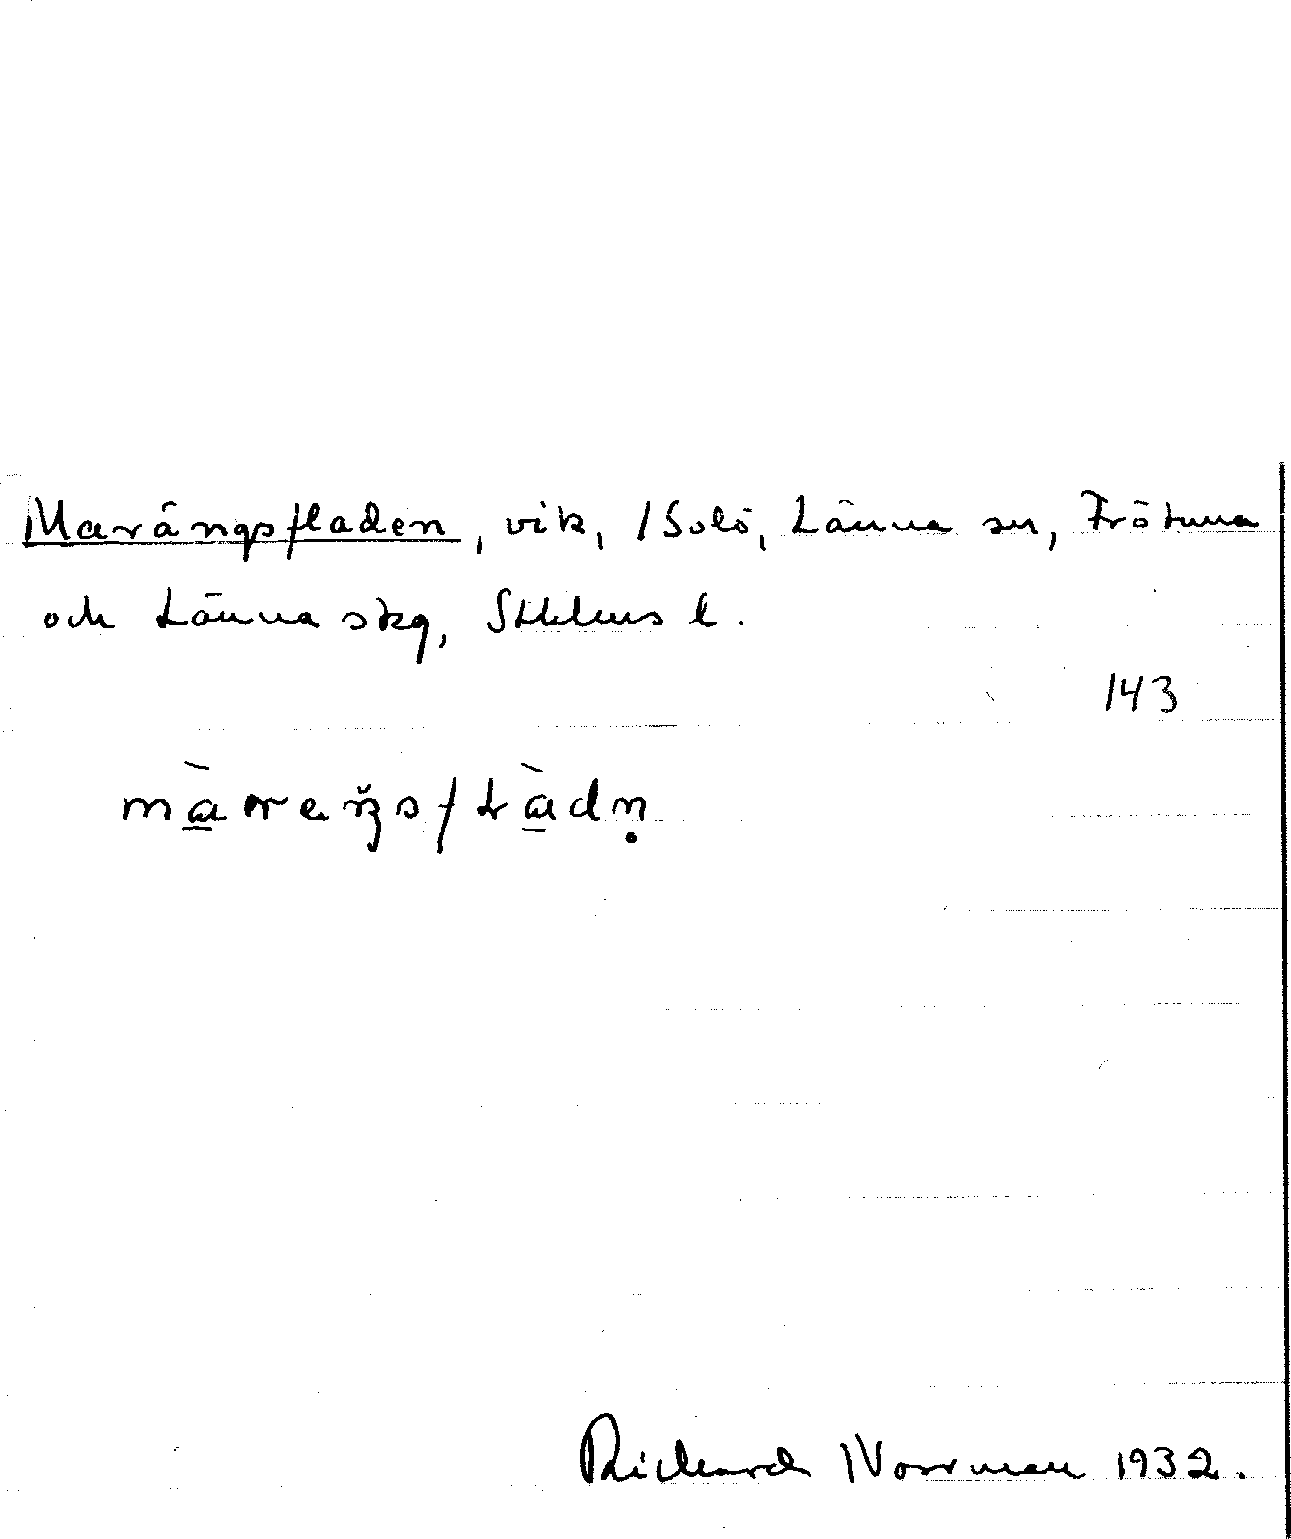 Marängsfladen, vik, /Solö, Länna sn, Frötuna
och Länna skg, Sthlms l.
143
màreŋsflàdṇ
Richard Norrman 1932.